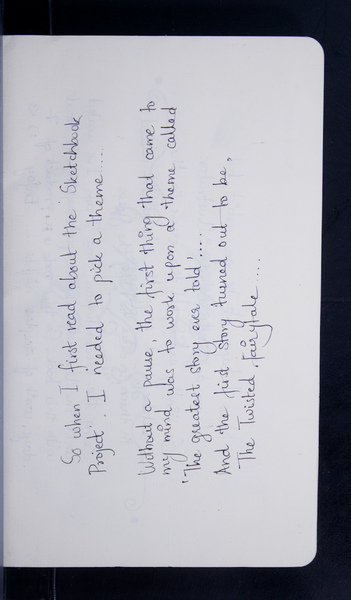 So when I first read about the 'Sketchbook
Project'. I needed to pick a theme....
Without a pause, the first thing that came to
my mind was to work upon a theme called
'The greatest story ever told'.....
And the first story turned out to be,
The Twisted Fairytale....